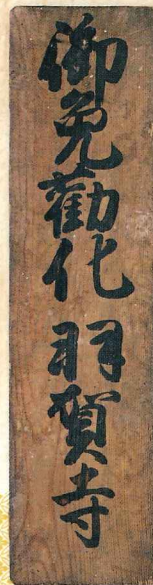 御免勧化 羽賀寺